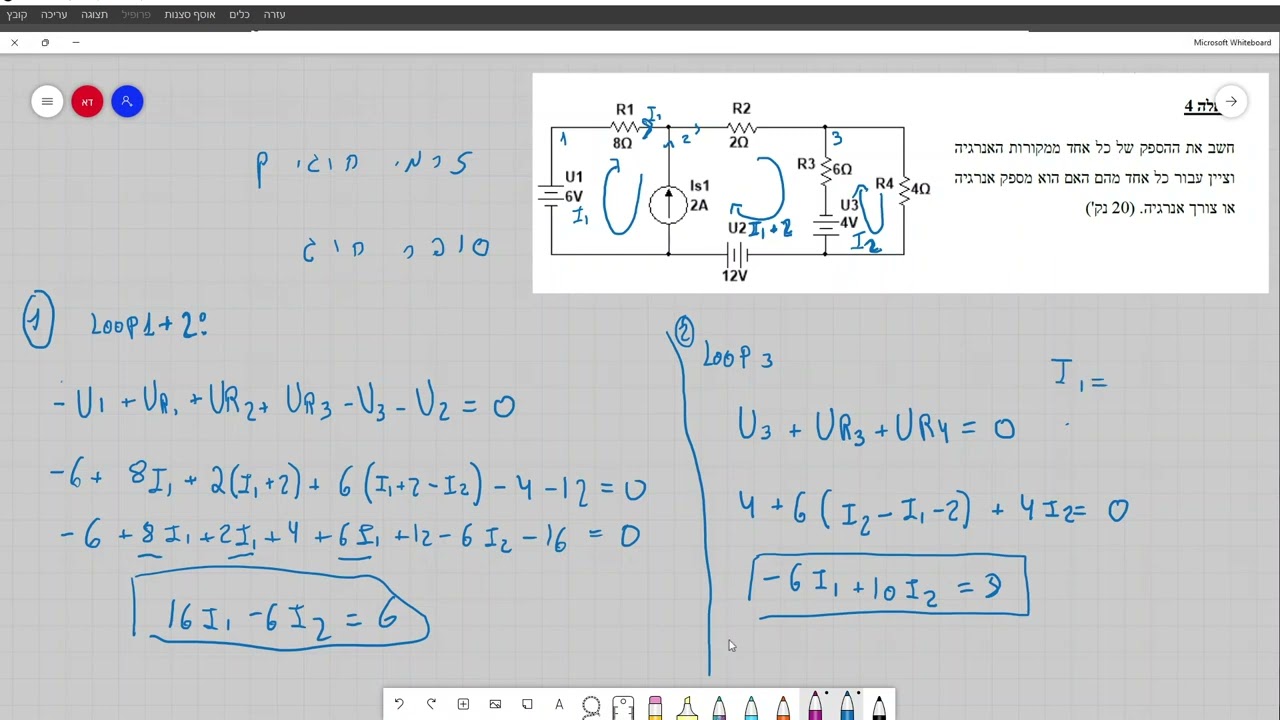 קובץ עריכה תצוגה פרופיל אוסף סצנות כלים עזרה
Microsoft Whiteboard
דא
חשב את ההספק של כל אחד ממקורות האנרגיה
וציין עבור כל אחד מהם האם הוא מספק אנרגיה
או צורך אנרגיה. (20 נק')
R1
8Ω
I₁
R2
2Ω
1
2
3
U1
6V
I₁
Is1
2A
R3
6Ω
R4
4Ω
U3
4V
U2
12V
I₁+2
I₂
זרמי חוגים
סופר חוג
1 LOOP 1+2:
-U1 + UR₁ + UR2 + UR3 - U3 - U2 = 0
-6 + 8I₁ + 2(I₁+2) + 6(I₁+2-I2) - 4 - 12 = 0
-6 + 8I₁ + 2I₁ + 4 + 6I₁ + 12 - 6I2 - 16 = 0
16I₁ - 6I2 = 6
2 LOOP 3
I₁ =
U3 + UR3 + UR4 = 0
4 + 6(I2 - I₁ - 2) + 4I2 = 0
-6I₁ + 10I2 =
A